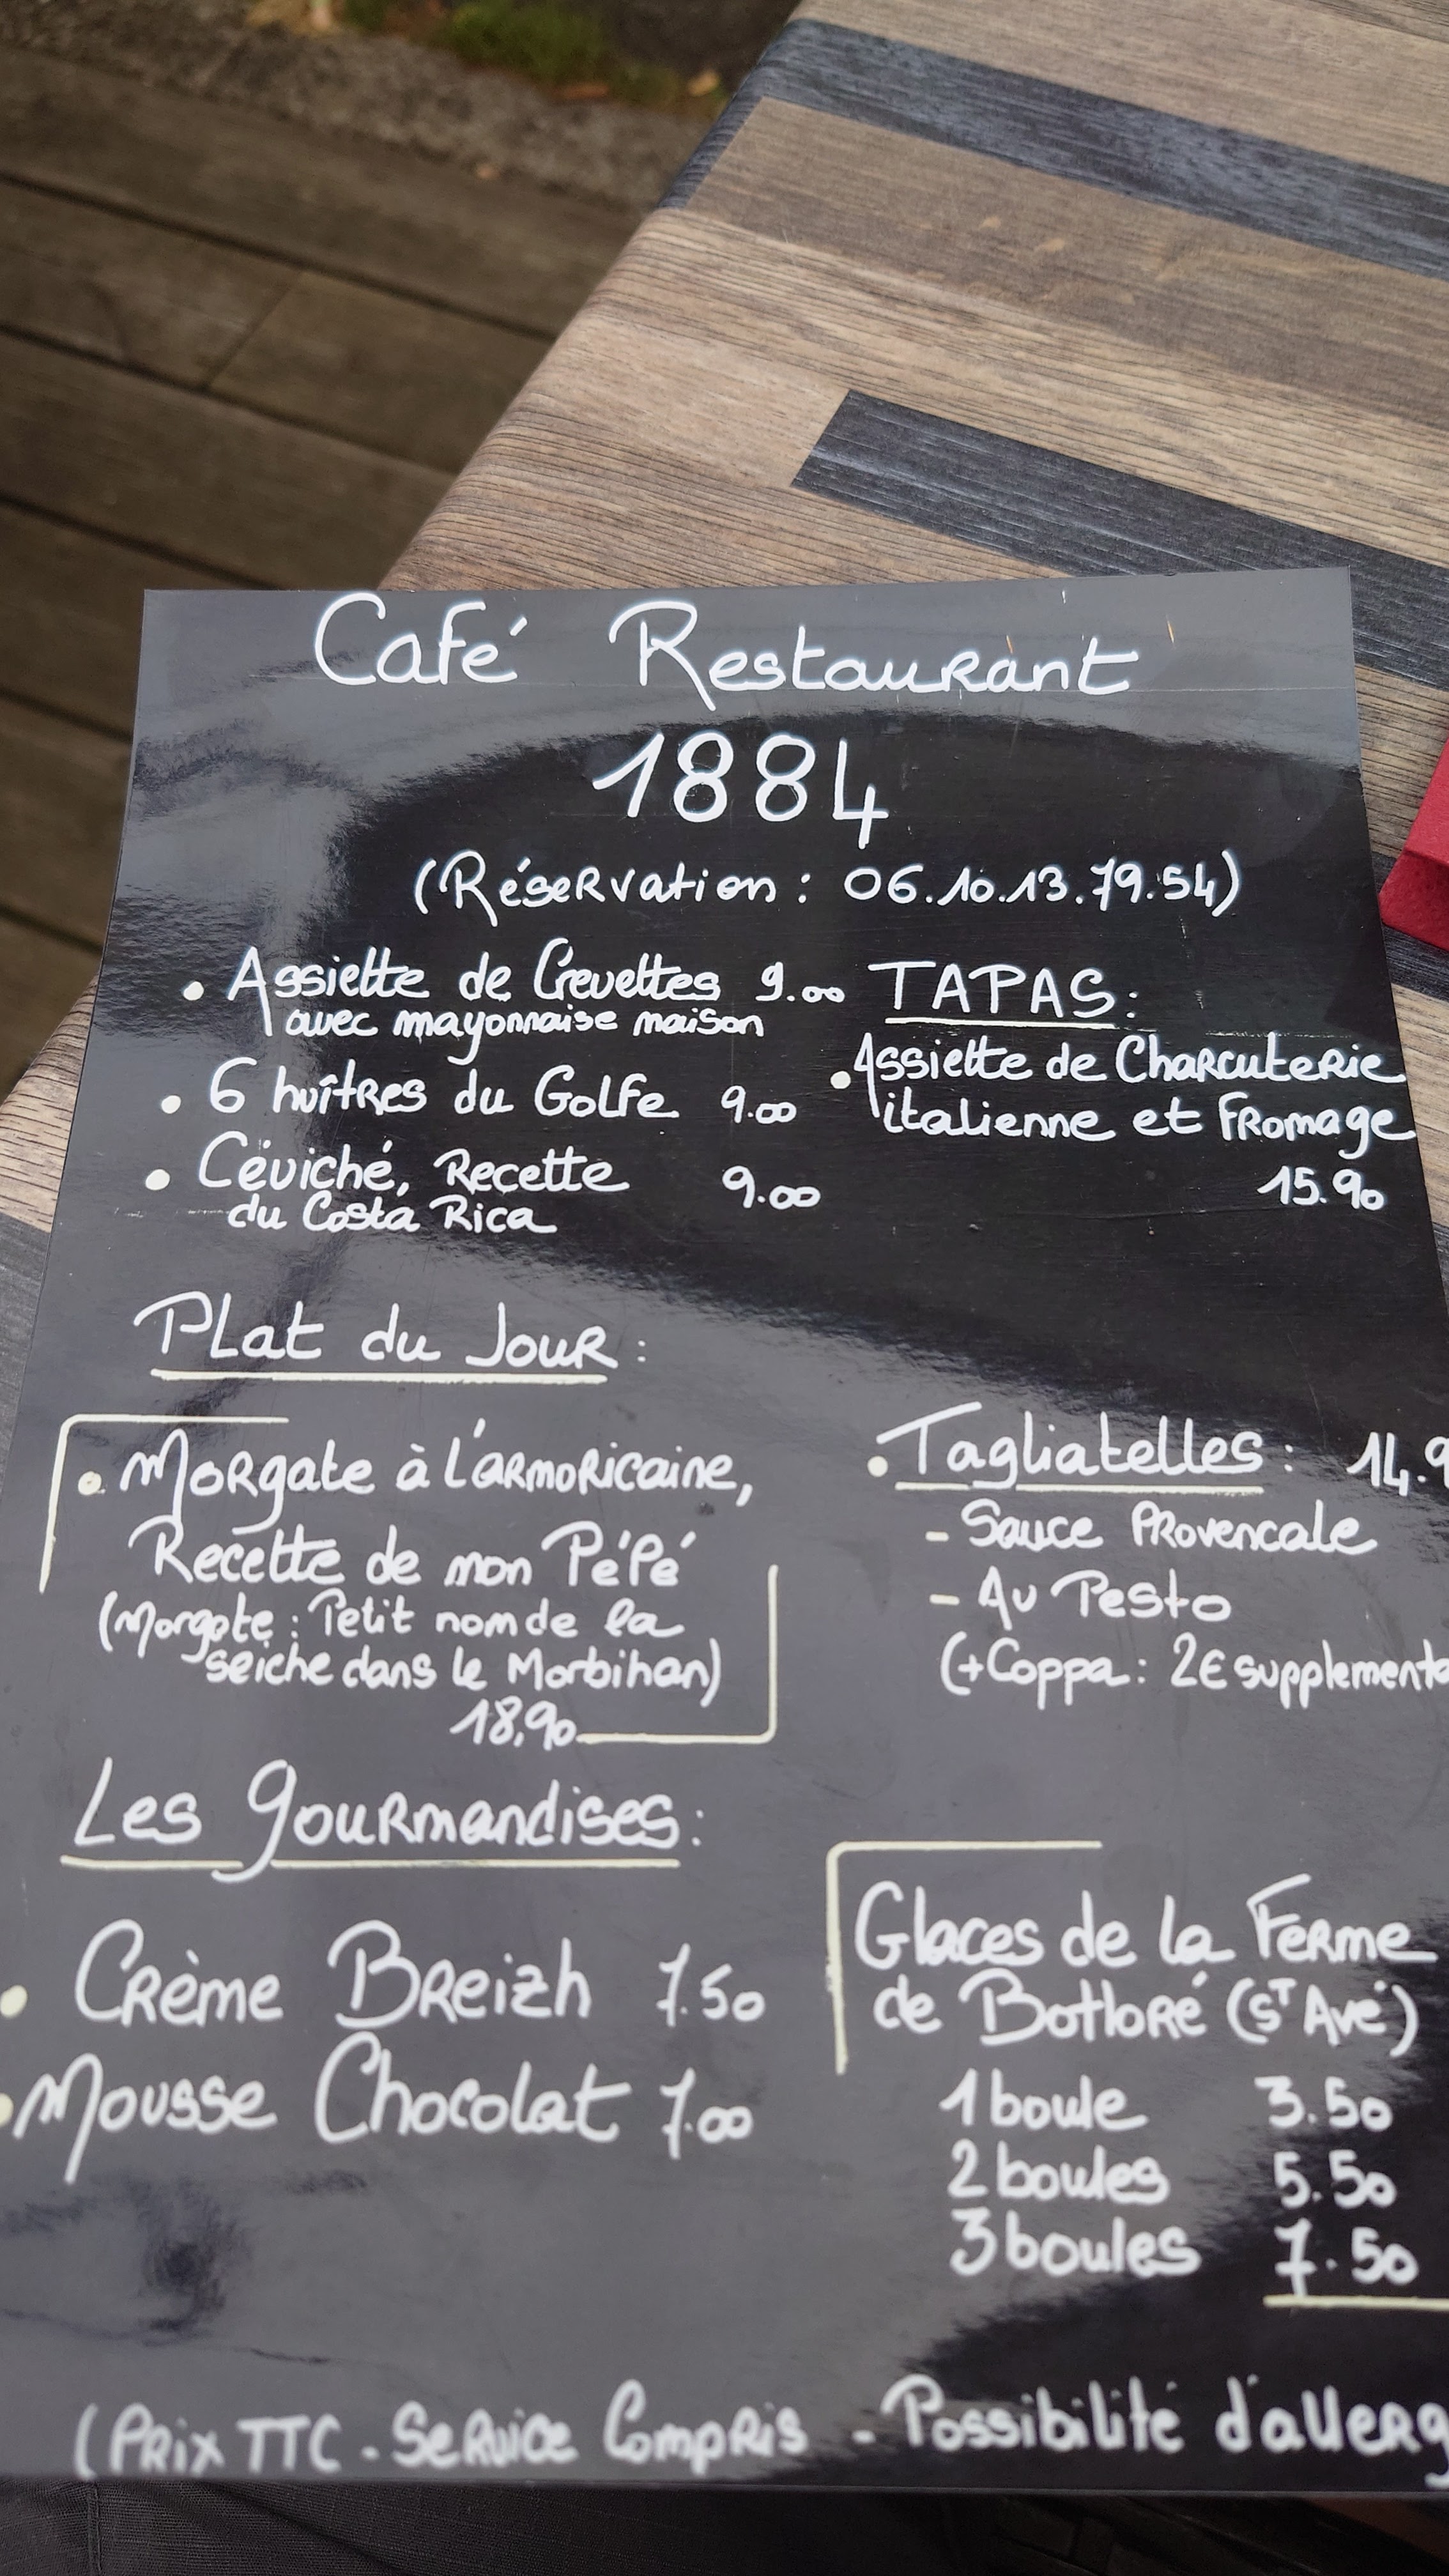 Café Restaurant
1884
(Réservation : 06.10.13.79.54)
• Assiette de Crevettes 9.00
avec mayonnaise maison
• 6 huîtres du Golfe 9.00
• Céviché, Recette 9.00
du Costa Rica
TAPAS :
• Assiette de Charcuterie
italienne et Fromage
15.90
Plat du Jour :
• Morgate à l'armoricaine,
Recette de mon Pépé
(Morgate : Petit nom de la
seiche dans le Morbihan)
18,90
• Tagliatelles : 14.9
- Sauce Provencale
- Au Pesto
(+Coppa : 2€ supplementa
Les gourmandises :
• Crème Breizh 7.50
• Mousse Chocolat 7.00
Glaces de la Ferme
de Botloré (St Avé)
1 boule 3.50
2 boules 5.50
3 boules 7.50
(Prix TTC - Service Compris - Possibilité d'allerg